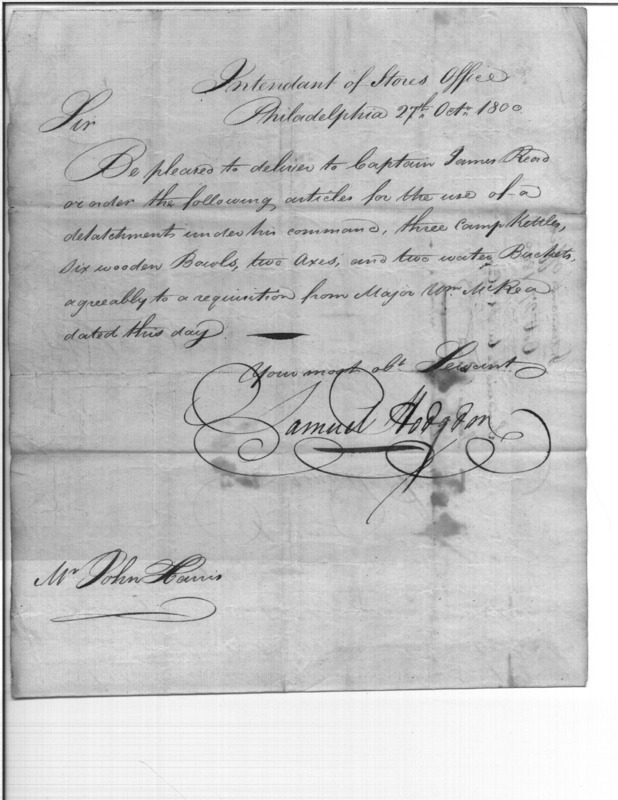 Intendant of Stores Office
Philadelphia 27th Octr 1800
Sir
Be pleased to deliver to Captain James Read
or order the following articles for the use of a
detatchments under his command, three Camp Kettles,
six wooden Bowls, two Axes, and two water Buckets,
agreeably to a requisition from Major Wm McRea
dated this day.
Your most obt Servant
Samuel Hodgdon
Mr John Harris